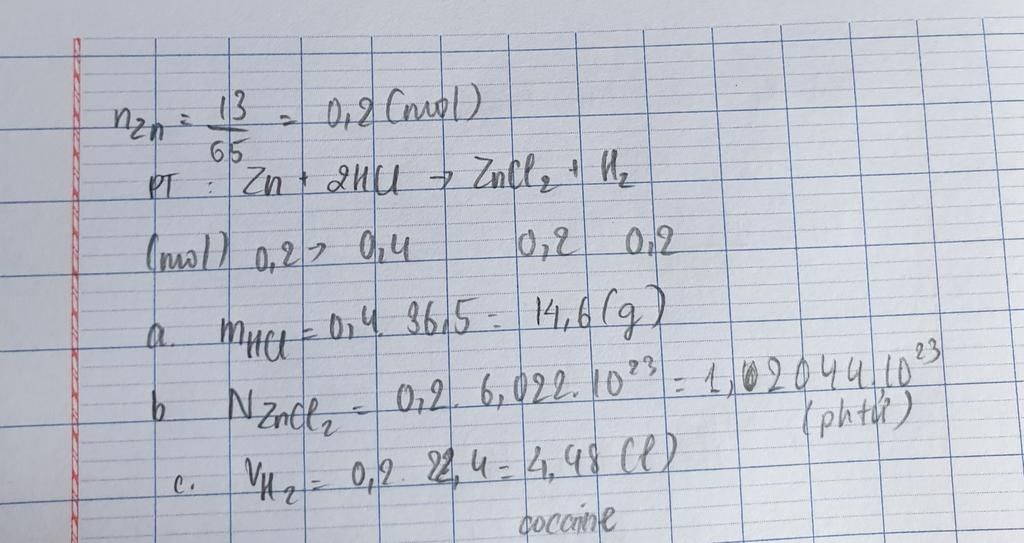 nZn = 13/65 = 0,2 (mol)
PT : Zn + 2HCl → ZnCl2 + H2
(mol) 0,2 → 0,4 0,2 0,2
a. mHCl = 0,4. 36,5 = 14,6 (g)
b NZnCl2 = 0,2. 6,022. 10^23 = 1,02044.10^23
(phtử)
c. VH2 = 0,2. 22,4 = 4,48 (l)
coccoine